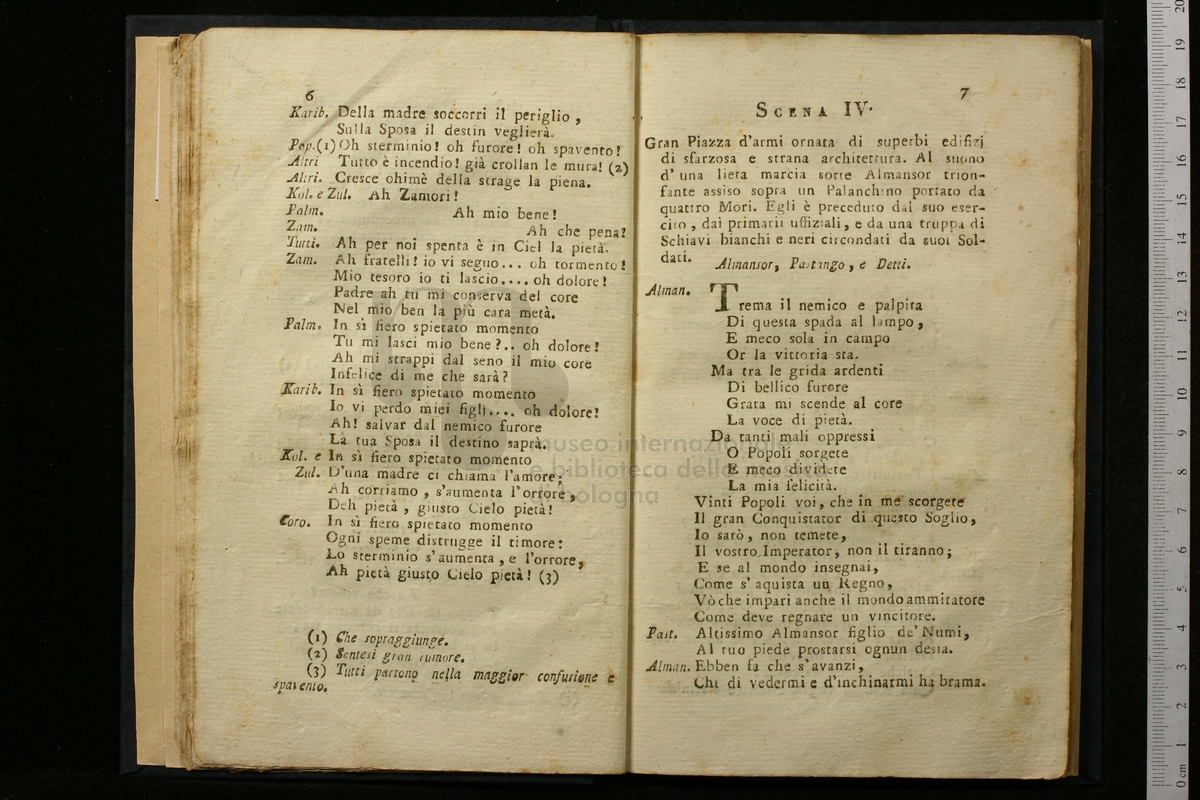 6
Karib. Della madre soccorri il periglio ,
Sulla Sposa il destin veglierà.
Pop. (1) Oh sterminio! oh furore! oh spavento!
Altri Tutto è incendio! già crollan le mura! (2)
Altri. Cresce ohimè della strage la piena.
Kol. e Zul. Ah Zamori!
Palm. Ah mio bene!
Zam. Ah che pena!
Tutti. Ah per noi spenta è in Ciel la pietà.
Zam. Ah fratelli! io vi seguo... oh tormento!
Mio tesoro io ti lascio.... oh dolore!
Padre ah tu mi conserva del core
Nel mio ben la più cara metà.
Palm. In sì fiero spietato momento
Tu mi lasci mio bene?.. oh dolore!
Ah mi strappi dal seno il mio core
Infelice di me che sarà?
Karib. In sì fiero spietato momento
Io vi perdo miei figlj.... oh dolore!
Ah! salvar dal nemico furore
La tua Sposa il destino saprà.
Kol. e In sì fiero spietato momento
Zul. D'una madre ci chiama l'amore;
Ah corriamo , s'aumenta l'orrore ,
Deh pietà , giusto Cielo pietà!
Coro. In sì fiero spietato momento
Ogni speme distrugge il timore:
Lo sterminio s'aumenta , e l'orrore,
Ah pietà giusto Cielo pietà! (3)
(1) Che sopraggiunge.
(2) Sentesi gran rumore.
(3) Tutti partono nella maggior confusione e
spavento.
7
SCENA IV.
Gran Piazza d'armi ornata di superbi edifizj
di sfarzosa e strana architettura. Al suono
d' una lieta marcia sorte Almansor trion-
fante assiso sopra un Palanchino portato da
quattro Mori. Egli è preceduto dal suo eser-
cito , dai primarii uffiziali, e da una truppa di
Schiavi bianchi e neri circondati da suoi Sol-
dati.
Almansor, Pastingo , e Detti.
Alman. Trema il nemico e palpita
Di questa spada al lampo,
E meco sola in campo
Or la vittoria sta.
Ma tra le grida ardenti
Di bellico furore
Grata mi scende al core
La voce di pietà.
Da tanti mali oppressi
O Popoli sorgete
E meco dividete
La mia felicità.
Vinti Popoli voi, che in me scorgete
Il gran Conquistator di questo Soglio,
Io sarò, non temete,
Il vostro Imperator, non il tiranno;
E se al mondo insegnai,
Come s' aquista un Regno,
Vò che impari anche il mondo ammiratore
Come deve regnare un vincitore.
Past. Altissimo Almansor figlio de' Numi,
Al tuo piede prostarsi ognun desia.
Alman. Ebben fa che s'avanzi,
Chi di vedermi e d'inchinarmi ha brama.
museo internazionale
e biblioteca della
bologna
0 cm 1 2 3 4 5 6 7 8 9 10 11 12 13 14 15 16 17 18 19 20